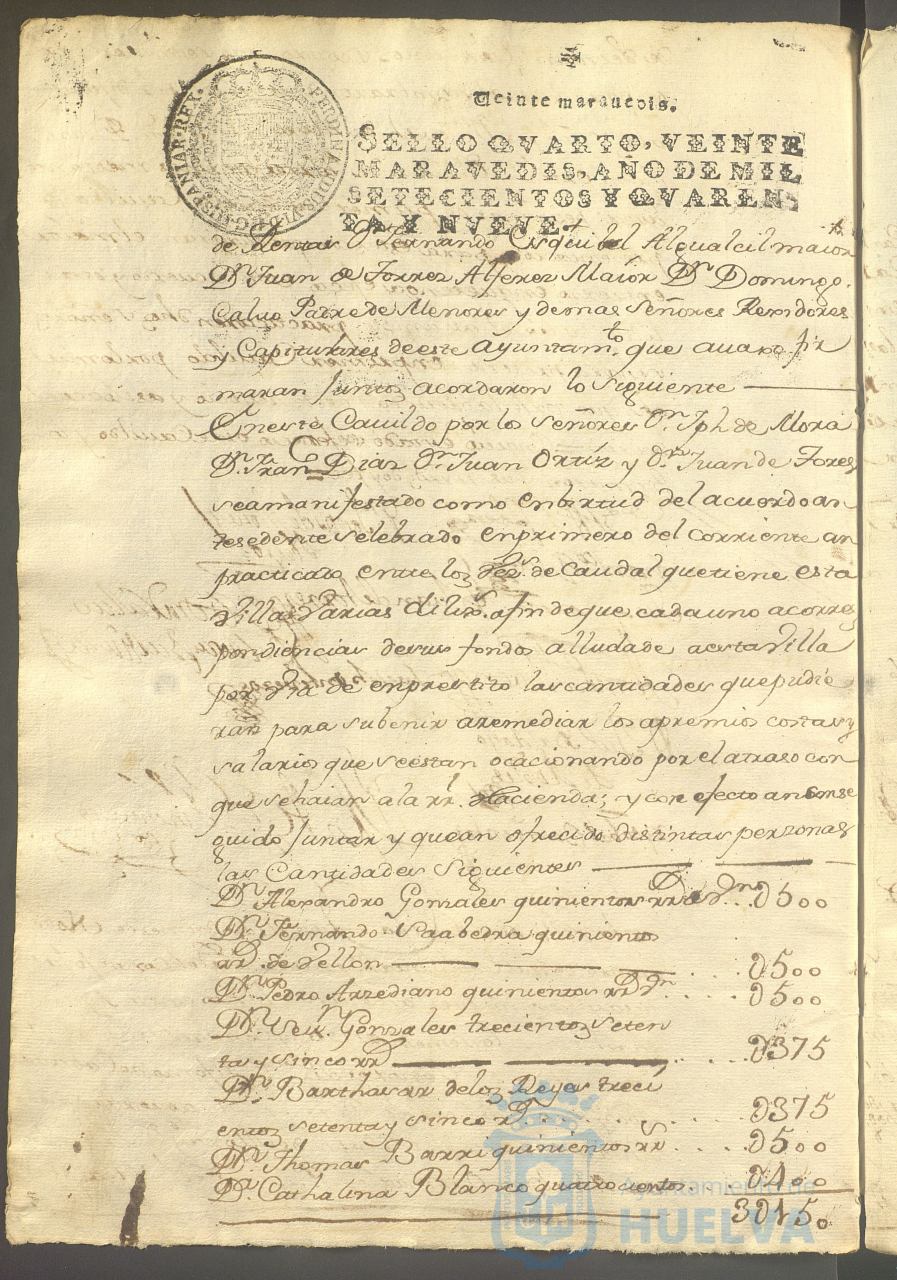 Veinte marauedis.
SELLO QVARTO, VEINTE
MARAVEDIS, AÑO DE MIL
SETECIENTOS Y QVAREN
TA Y NVEVE.
FERDINANDUS VI D G HISPANIAR REX
de Rentas Dn Fernando Esquibel Alguacil maior
Dn. Juan de Torres Alferez Maior Dn. Domingo
Caluo Padre de Menores y demas Señores Rexidores
y Capitulares de este Ayuntamto. que auaxo fir
maran juntos acordaron lo siguiente
En este Cauildo por los señores Dn. Jph de Mora
Dn. Franco Dias Dn. Juan Ortiz y Dn. Juan de Tores
sea manifestado como enbirtud del acuerdo an
tesedente selebrado enprimero del corriente an
practicado entre los de Caudal que tiene esta
Villa Varias dilixs. afin de que cada uno a corres
pondiencias desus fondos alludade a esta Villa
por Via de enprestito las cantidades que pudie
ran para subenir a remediar los apremios costas y
salarios que se estan ocacionando por el atraso con
que se haian a la rl. Hacienda; y con efecto an conse
guido juntar y quean ofrecido distintas perzonas
las Cantidades Siguientes
Dn. Alexandro Gonzales quinientos rrs de Vn. D500
Dn. Fernando Saabedra quinientos
rrs. de Vellon D500
Dn. Pedro Arzediano quinientos rrs Vn D500
Dn. Gonzales trecientos seten
ta y sinco rrs D375
Dn. Barthasar de los Reyes treci
entos setenta y sinco rs D375
Dn. Thomas Barri quinientos rrs D500
Da. Cathalina Blanco quatrocientos D400
3D150
Ayuntamiento de
HUELVA